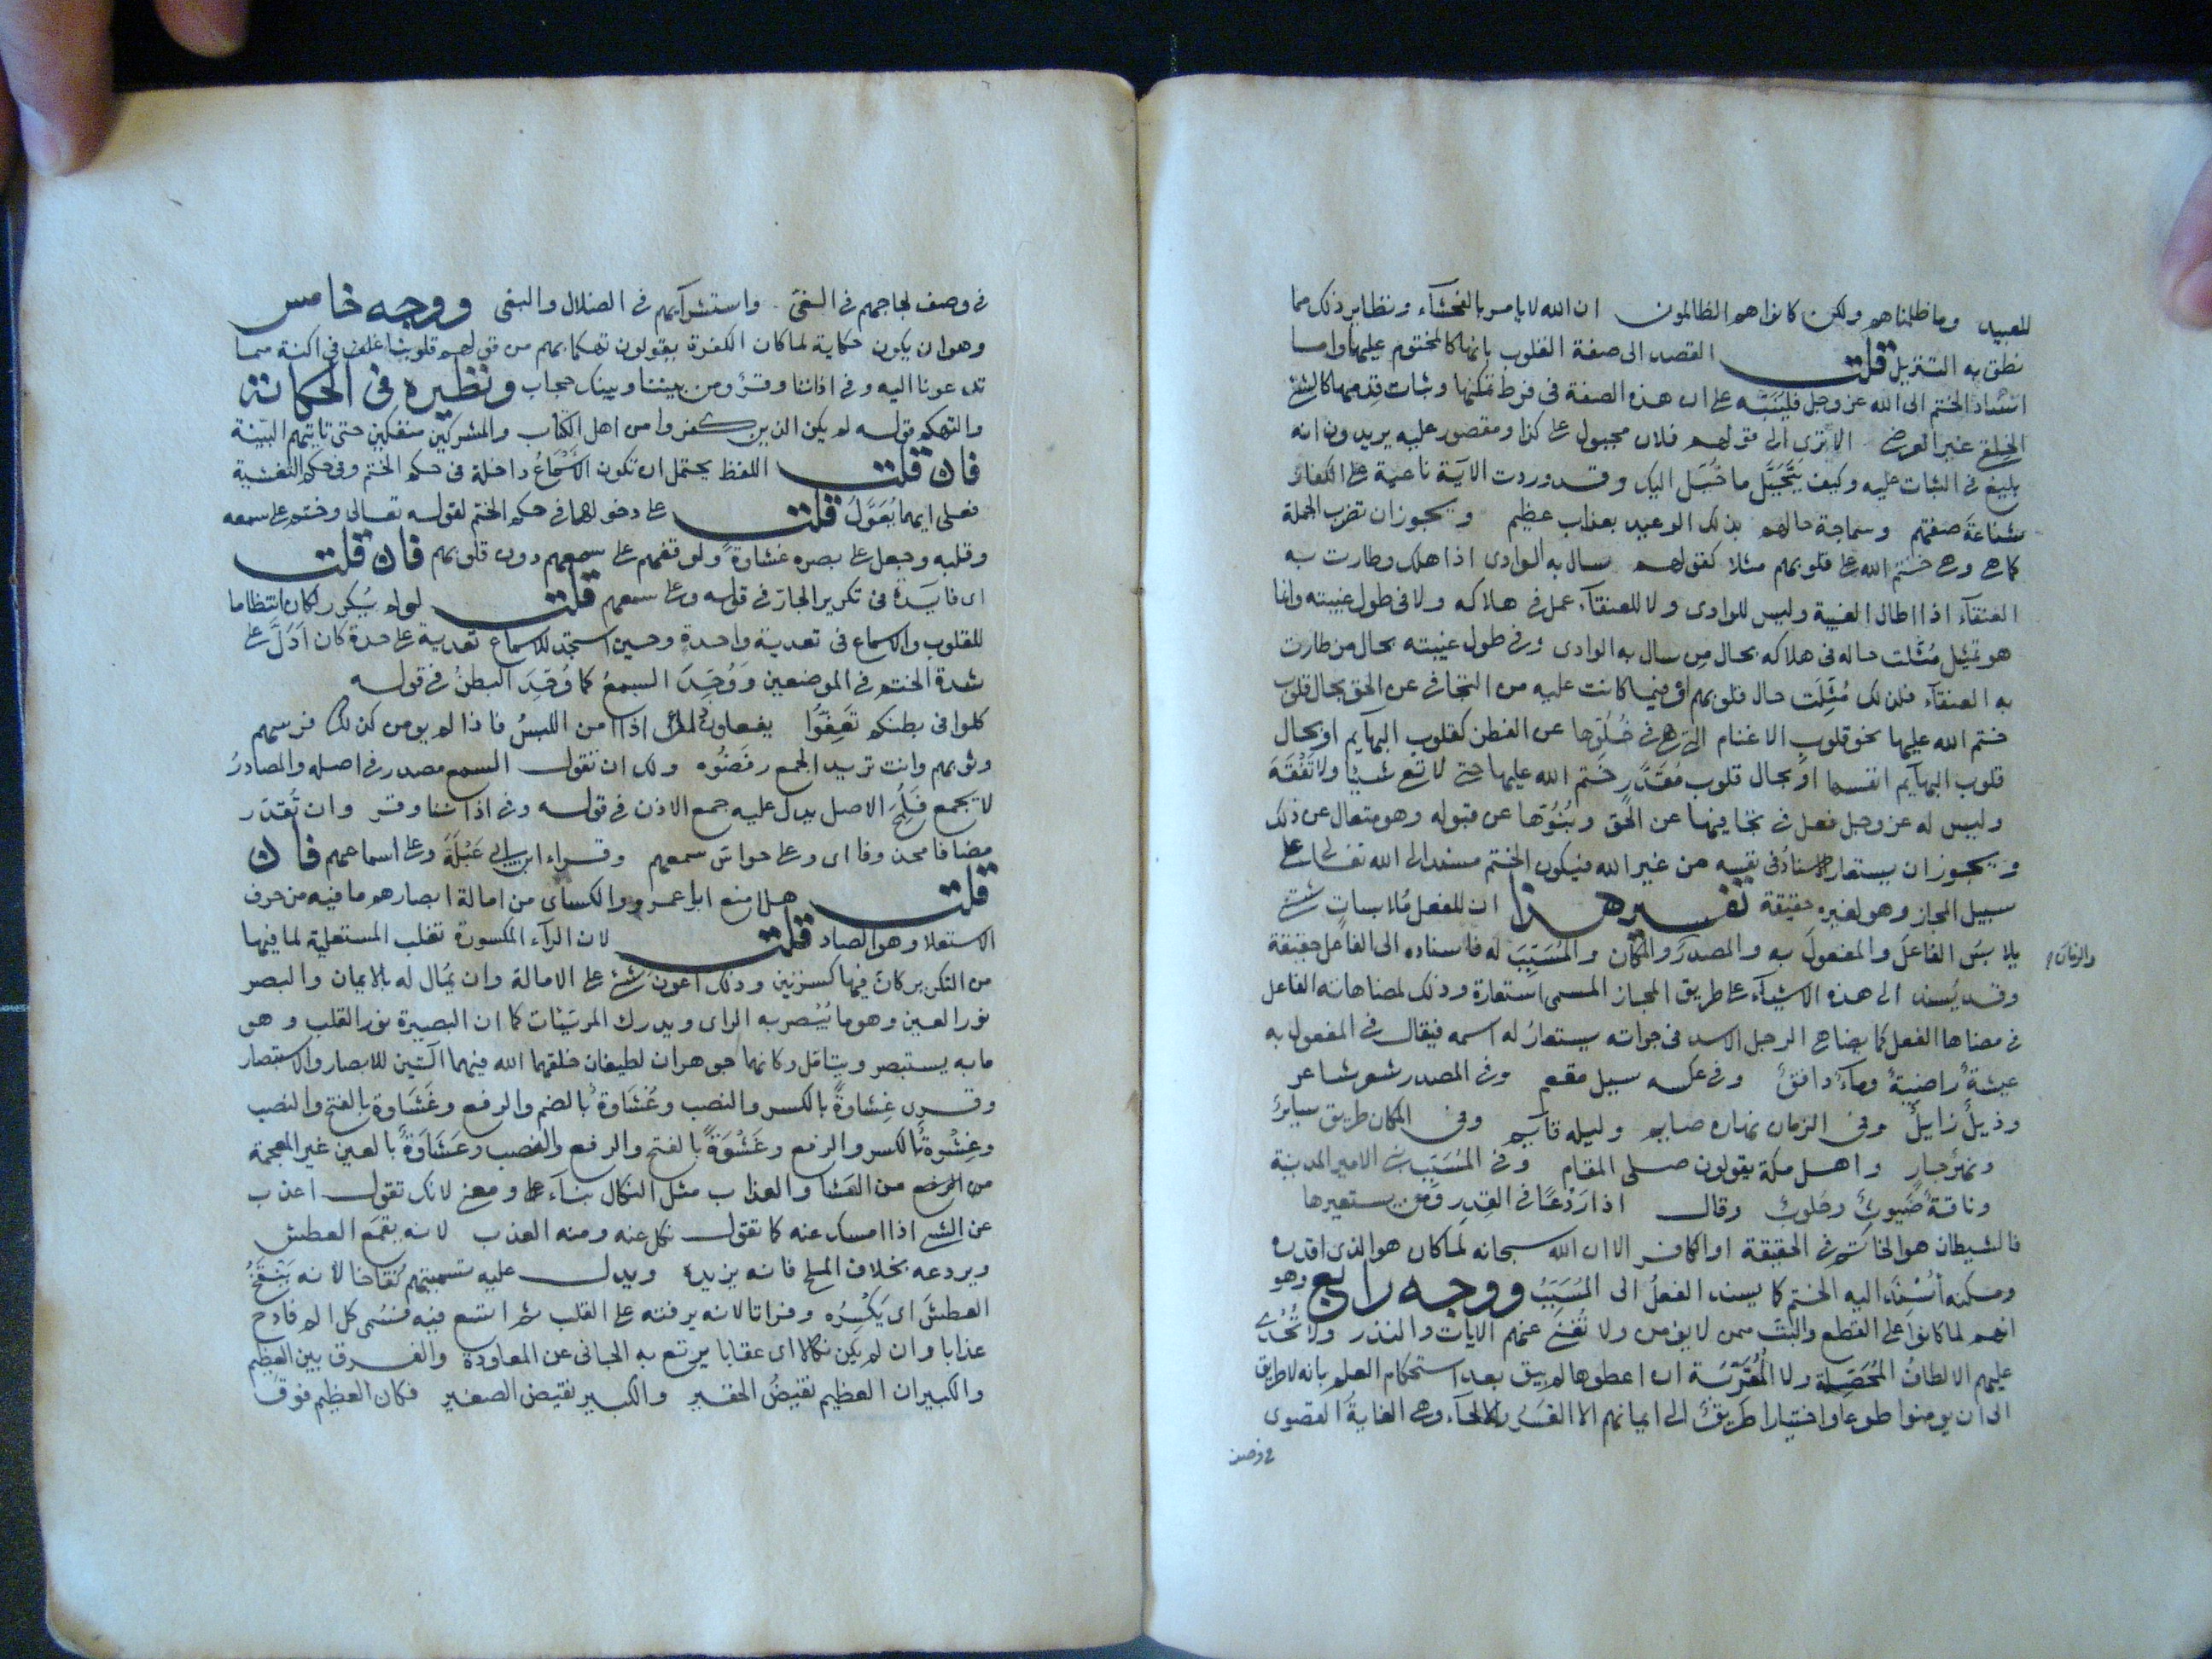 للعبيد وما ظلمناهم ولكن كانوا هم الظالمون ان الله لا يامر بالفحشآء ونظاير ذلك مما
نطق به التنزيل قلت القصد الى صفة القلوب بانها كالمختوم عليها واما
اسناد الختم الى الله عز وجل فلينبه على ان هذه الصفة فى فرط تمكنها وثبات قدمها كالشئ
الخلقى غير العرضى الا ترى الى قولهم فلان مجبول على كذا ومفطور عليه يريدون انه
بليغ فى الثبات عليه وكيف يتخيل ما خيل اليك وقد وردت الاية ناعية على الكفار
شناعة صفتهم وسماجة حالهم بذلك الوعيد بعذاب عظيم ويجوز ان تضرب الجملة
كما هى وهى ختم الله على قلوبهم مثلا كقولهم سال به الوادى اذا هلك وطارت به
العنقآء اذا اطال الغيبة وليس للوادى ولا للعنقآء عمل فى هلاكه ولا فى طول غيبته وانما
هو تمثيل مُثّلت حاله فى هلاكه بحال من سال به الوادى وفى طول غيبته بحال من طارت
به العنقآء فكذلك مُثّلَت حال قلوبهم فيما كانت عليه من التجافى عن الحق بحال قلوب
ختم الله عليها نحو قلوب الاغنام التى هى فى خلوها عن الفطن كقلوب البهايم او بحال
قلوب البهايم انفسها او بحال قلوب مُقدَّر ختم الله عليها حتى لا تعى شيئا ولا تفقه
وليس له عز وجل فعل فى تجافيها عن الحق ونبوّها عن قبوله وهو متعال عن ذلك
ويجوز ان يستعار الاسناد فى نفسه من غير الله فيكون الختم مسندا الى الله تعالى على
سبيل المجاز وهو لغيره حقيقة تفسير هذا ان للفعل مُلابسات شتى
يلابس الفاعلَ والمفعولَ به والمصدرَ والمكان والمُسَبِّبَ له فاسناده الى الفاعل حقيقة
والزمان
وقد يُسند الى هذه الاشيآء على طريق المجاز المسمى استعارة وذلك لمضاهاته الفاعل
فى مضاهاة الفعل كما يضاهى الرجل الاسد فى جراته يستعار له اسمه فيقال فى المفعول به
عيشة راضية ومآء دافق وفى عكسه سيل مفعم وفى المصدر شعر شاعر
وذيل ذايل وفى الزمان نهاره صايم وليله قايم وفى المكان طريق ساير
ونهر جار واهل مكة يقولون صلى المقام وفى المُسَبِّب بنى الامير المدينة
وناقة ضبوث وحلوب وقال اذا رَدَّ عافى القِدر مَن يستعيرها
فالشيطان هو الخاتم فى الحقيقة او الكافر الا ان الله سبحانه لما كان هو الذى اقدره
ومكنه أُسْنِدَ اليه الختم كما يسند الفعلُ الى المُسَبِّب ووجه رابع وهو
انهم لما كانوا على القطع والبتّ ممن لا يؤمن ولا تُغنى عنهم الايات والنذر ولا تُجْدى
عليهم الالطافُ المُحَصِّلة ولا المُقَرِّبَة ان اعطوها لم يبق بعد استحكام العلم بانه لا طريق
الى ان يومنوا طوعا واختيارا طريق الى ايمانهم الا القسر والالجآء وهى الغاية القصوى
فى وصف
فى وصف لجاجهم فى الغى واستشرآيهم فى الضلال والبغى ووجه خامس
وهو ان يكون حكاية لما كان الكفرة يقولون تهكما بهم من قولهم قلوبنا غلف فى اكنة مما
تدعونا اليه وفى اذاننا وقر ومن بيننا وبينك حجاب ونظيره فى الحكاية
والتهكم قوله لم يكن الذين كفروا من اهل الكتاب والمشركين منفكين حتى تاتيهم البيّنة
فان قلت اللفظ يحتمل ان تكون الاسماعُ داخلة فى حكم الختم وفى حكم التغشية
فعلى ايهما يُعَوَّلُ قلت على دخولها فى حكم الختم لقوله تعالى وختم على سمعه
وقلبه وجعل على بصره غشاوةً ولوقفهم على سمعهم دون قلوبهم فان قلت
اى فايدة فى تكرير الجار فى قوله وعلى سمعهم قلت لو لم يُكرر لكان انتظاما
للقلوب والاسماع فى تعدية واحدة وحين استجد للاسماع تعدية على حدة كان اَدَلَّ على
شدة الختم فى الموضعين وَوُحِّدَ السمعُ كما وُحِّدَ البطنُ فى قوله
كلوا فى بطنكم تَعِفّوا يفعلون ذلك اذا امن اللبسُ فاذا لم يومن كذلك فرسهم
وثوبهم وانت تريد الجمع رفضُوه ولك ان تقول السمع مصدر فى اصله والمصادرُ
لا تجمع فَلُمِحَ الاصل يدل عليه جمع الاذن فى قوله وفى اذاننا وقر وان تُقدّر
مضافا محذوفا اى وعلى حواسّ سمعهم وقراء ابن ابى عَبْلَةَ وعلى اسماعهم فان
قلت هلا منع ابا عمرو والكساى من امالة ابصارهم ما فيه من حرف
الاستعلا وهو الصاد قلت لان الرآء المكسورة تغلب المستعلية لما فيها
من التكرير كان فيها كسرتين وذلك اعون شئ على الامالة وان يُمال له بالايمان والبصر
نور العين وهو ما يُبْصر به الراى ويدرك المرئيات كما ان البصيرة نور القلب وهو
ما به يستبصر ويتامل وكانهما جوهران لطيفان خلقهما الله فيهما آلتين للابصار والاستبصار
وقرى غِشاوةً بالكسر والنصب وغُشاوةٌ بالضم والرفع وغَشاوةً بالفتح والنصب
وغِشْوةٌ بالكسر والرفع وغَشْوَةً بالفتح والرفع والنصب وعَشَاوَةٌ بالعين غير المعجمة
من الرفع من العَشا والعذاب مثل النكال بنآء ومعنى لانك تقول اعذب
عن الشى اذا امسك عنه كما تقول نكل عنه ومنه العذب لانه يقمَع العطش
ويردعه بخلاف الملح فانه يزيده ويدل عليه تسميتهم نُقاخا لانه يَنْقَخُ
العطش اى يَكْسِرُه وفراتا لانه يرفته على القلب ثم اتسع فيه فسُمى كل الم فادح
عذابا وان لم يكن نكالا اى عقابا يرتدع به الجانى عن المعاودة والفرق بين العظيم
والكبير ان العظيم نقيضُ الحقير والكبير نقيض الصغير فكان العظيم فوق